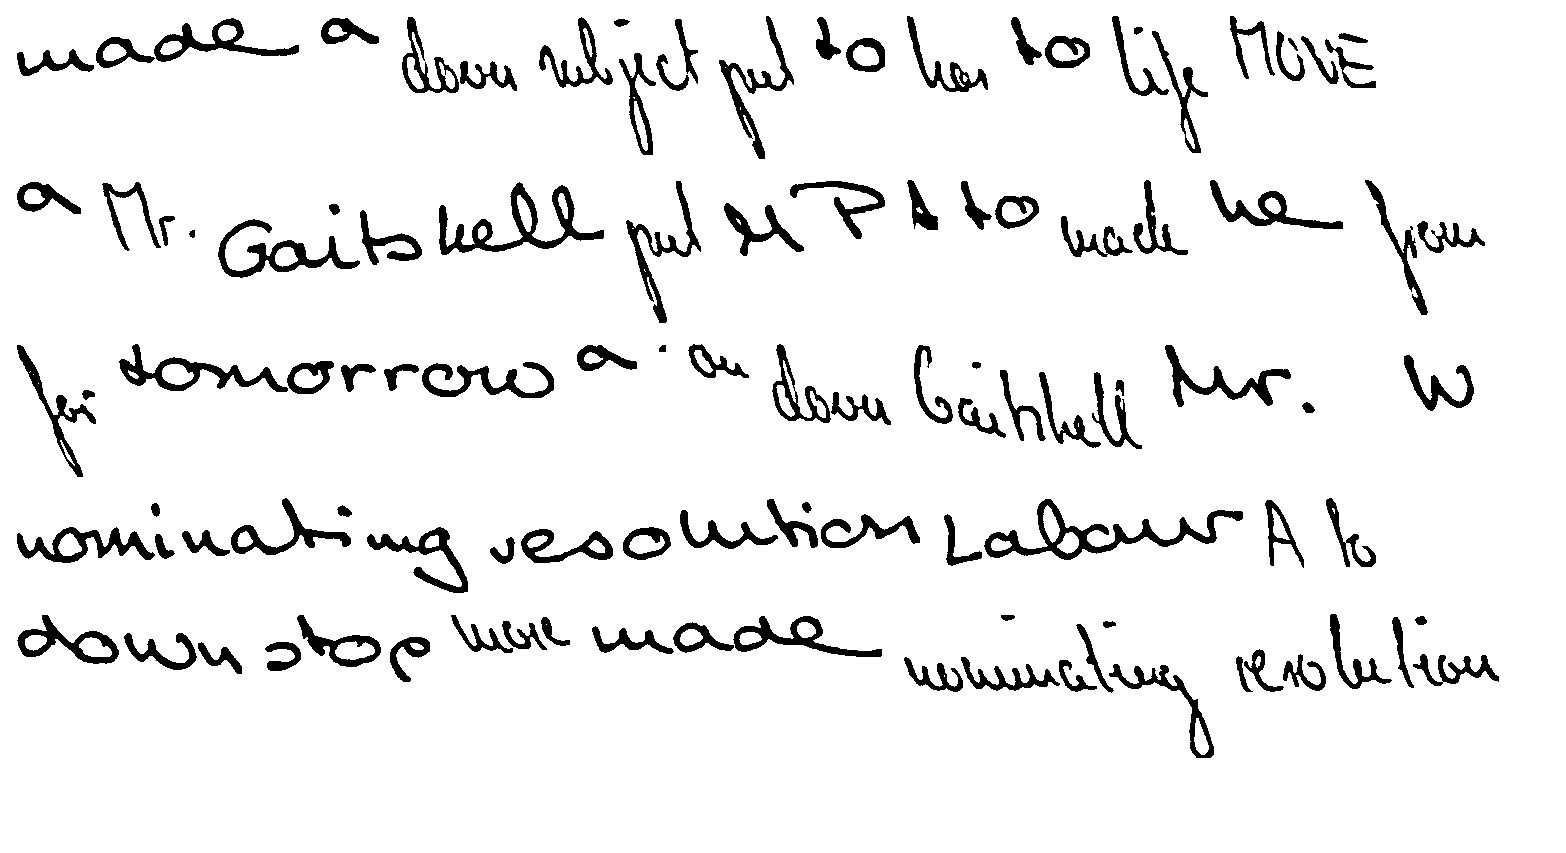 made a down subject put to has to life MOVE
a Mr. Gaitskell put M P A to made he from
for tomorrow a . on down Gaitskell Mr. W
nominating resolution Labour A to
down stop more made nominating resolution